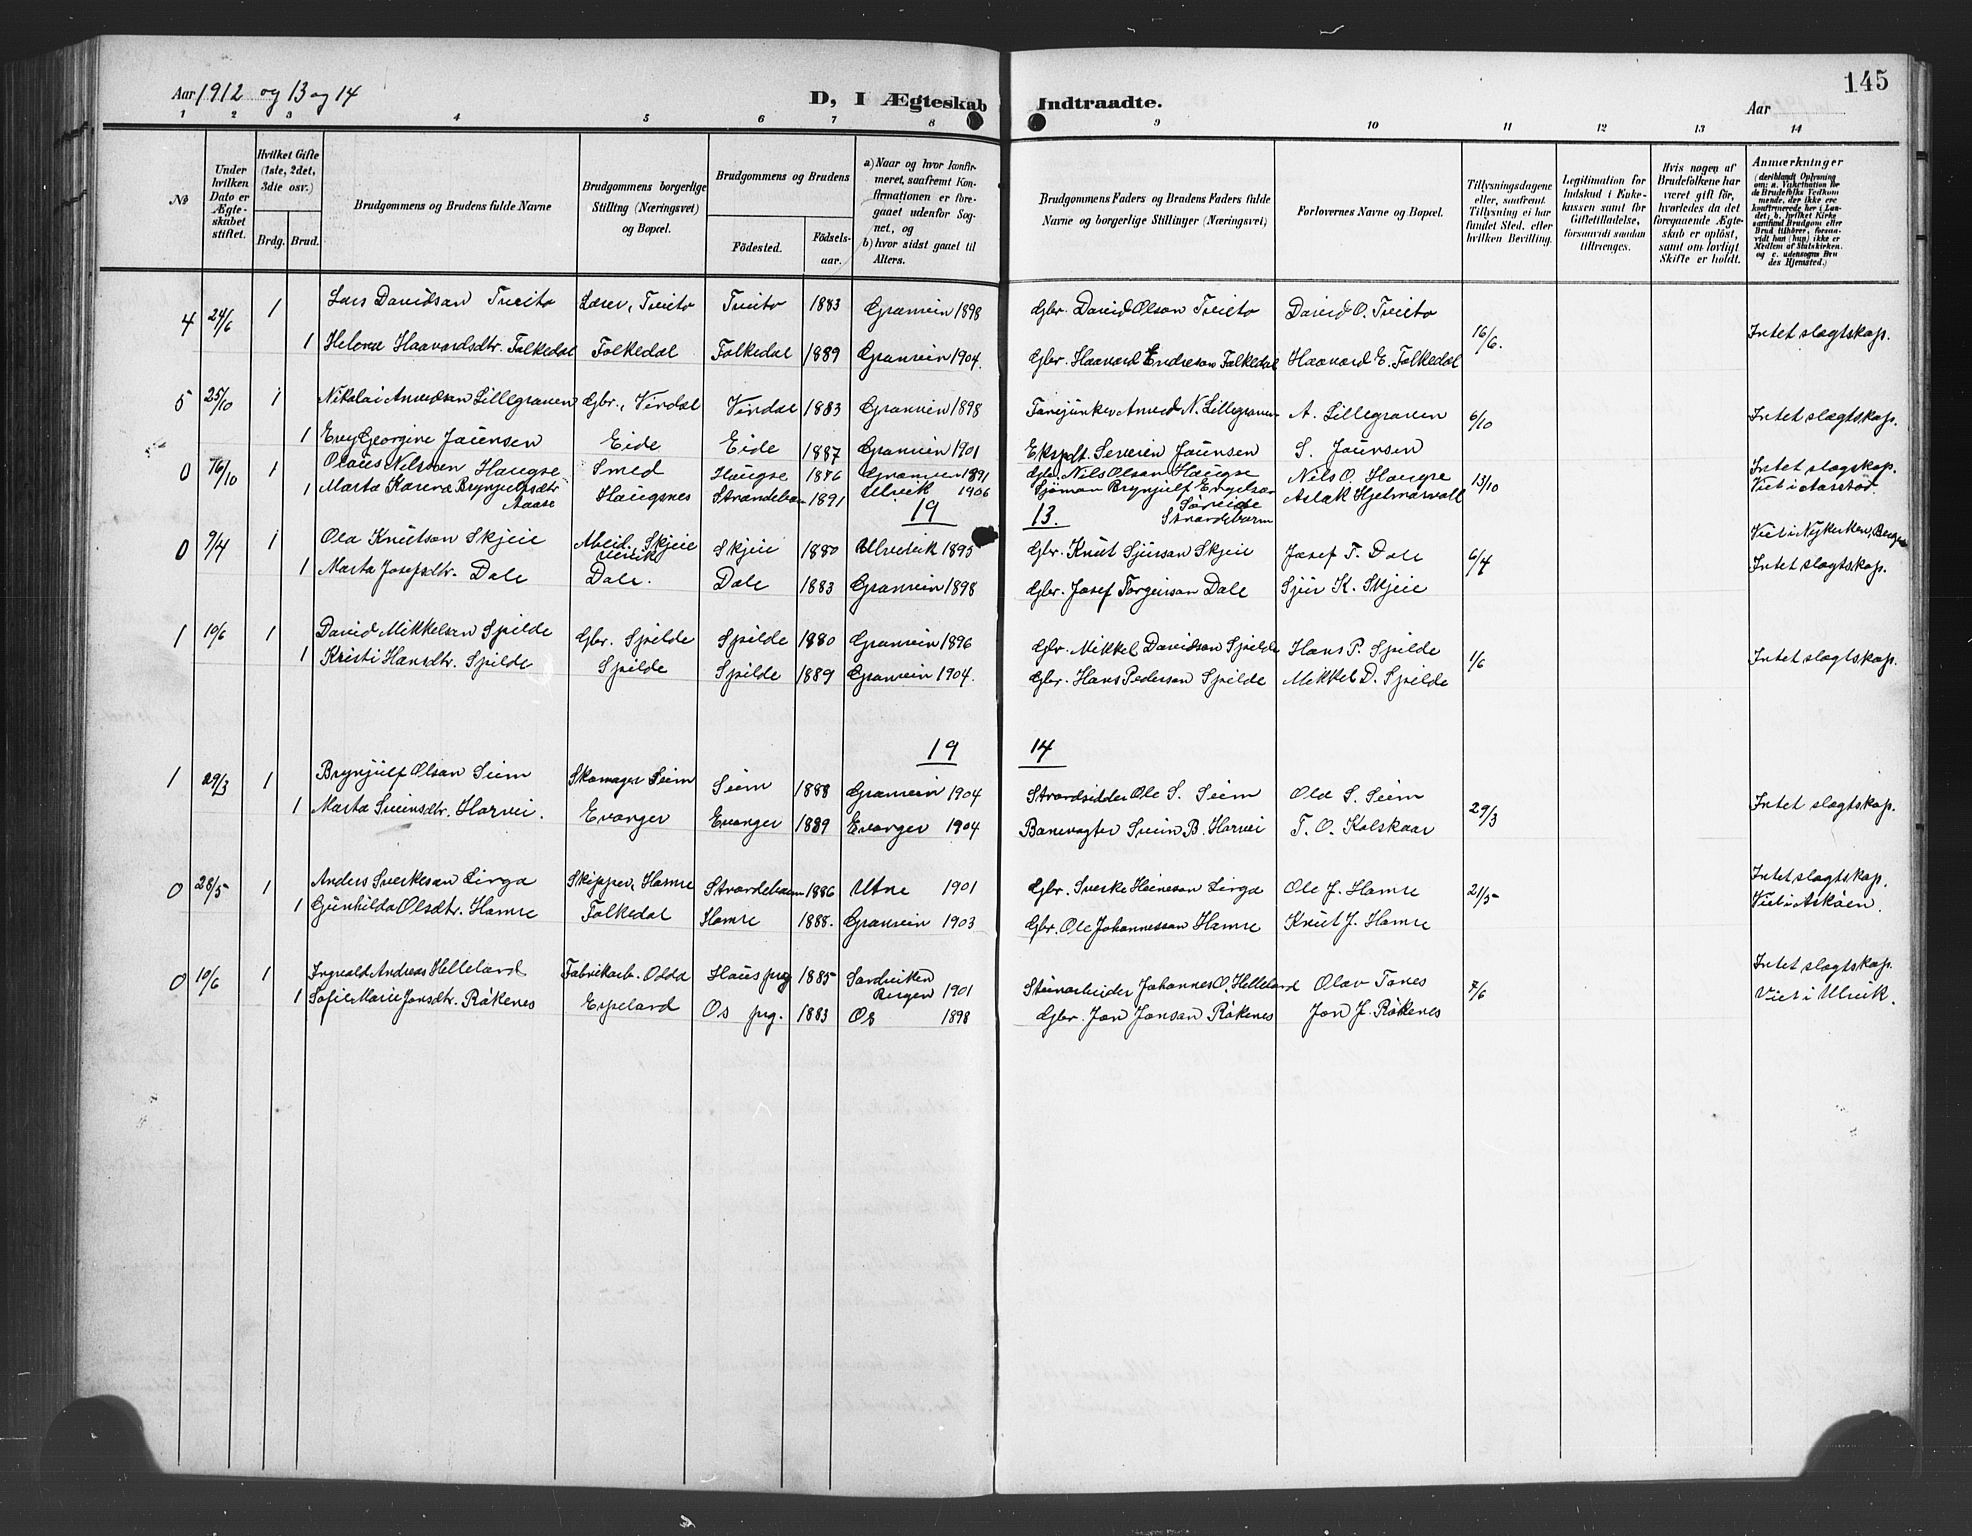 145
Aar 1912 og 13 og 14
D, I Ægteskab Indtraadte.
Aar
1 2 3 4 5 6 7 8 9 10 11 12 13 14
№
Under hvilken Dato er Ægteskabet stiftet.
Hvilket Gifte (1ste, 2det, 3die osv.)
Brdg. Brud.
Brudgommens og Brudens fulde Navne
Brudgommens borgerlige Stilling (Næringsvei) og Bopæl.
Brudgommens og Brudens
Födested. Födselsaar.
a) Naar og hvor konfirmeret, saafremt Konfirmationen er foregaaet udenfor Sognet, og
b) hvor sidst gaaet til Alters.
Brudgommens Faders og Brudens Faders fulde Navne og borgerlige Stillinger (Næringsvei)
Forlovernes Navne og Bopæl.
Tillysningsdagene eller, saafremt Tillysning ei har fundet Sted, efter hvilken Bevilling.
Legitimation for Indskud i Enkekassen samt for Giftetilladelse, forsaavidt saadan tiltrænges.
Hvis nogen af Brudefolkene har været gift för, hvorledes da det foregaaende Ægteskab er oplöst, samt om lovligt Skifte er holdt.
Anmærkninger (deriblandt Oplysning om: a. Vakcination for de Brudefolks Vedkommende, der ikke ere konfirmerede her i Landet; b. hvilket Kirkesamfund Brudgom eller Brud tilhörer, forsaavidt han (hun) ikke er Medlem af Statskirken, og c. udensogns Brudes Hjemsted.)
4 24/6 1 Lars Davidsen Tveito Lærer, Tveito Tveito 1883 Granvin 1898 Gbr. David Olson Tveito David O. Tveito 16/6. Intet slægtskap.
1 Helena Haavardsdtr. Folkedal Folkedal Folkedal 1889 Granvin 1904. Gbr. Haavard Endreson Folkedal Haavard E. Folkedal
5 25/10 1 Nikolai Arvedsen Lillegraven Gbr., Vindal Vindal 1883 Granvin 1898 Arved N. Lillegraven A. Lillegraven 6/10 Intet slægtskap.
1 Evy Georgine Jaunsen Eide Eide 1887 Granvin 1901 Ekspdt. Severin Jaunsen S. Jaunsen
0 16/10 1 Olaus Nilssen Haugse Smed Haugse 1876 Granvin 1891 Gbr. Nils Olson Haugse Nils O. Haugse 13/10 Intet slægtskap.
1 Marta Karina Brynjulfsdtr Aaase Haugsnes Strandebarm 1891 Ulvik 1906 Sjöman Brynjulf Engelsen Aslak Hjelmarvoll Viet i Aasstod.
Strandebarm
19 13.
0 9/4 1 Ola Knutson Skjeie Arbeid. Skjeie Ulvik Skjeie 1880 Ulvik 1895 Gbr. Knut Sjurson Skjeie Josef T. Dale 6/4 Viet i Nykirken, Bergen
1 Marta Josefsdtr. Dale Dale. Dale 1883 Granvin 1898 Gbr. Josef Torgeirson Dale Sjur K. Skjeie Intet slægtskap.
1 10/6 1 David Mikkelson Spilde Gbr. Spilde Spilde 1880 Granvin 1896 Gbr. Mikkel Davidson Spilde Hans P. Spilde 1/6 Intet slægtskap.
1 Kristi Hansdtr. Spilde Spilde Spilde 1889 Granvin 1904. Gbr. Hans Pederson Spilde Mikkel D. Spilde
19 14
1 29/3 1 Brynjulf Olson Seim Skomager Seim Seim 1888 Granvin 1904 Strandsidder Ole S. Seim Ola S. Seim 29/3 Intet slægtskap.
1 Marta Sveinsdtr. Horvei. Evanger Evanger 1889 Evanger 1904 Banevogter Svein B. Horvei T. O. Kolskaar
0 28/5 1 Anders Sverkeson Lirga Skipper, Hamre Strandebarm 1886 Utne 1901 Gbr. Sverke Heineson Lirga Ole J. Hamre 21/5 Intet slægtskap.
1 Gunhilda Olsdtr. Hamre Folkedal Hamre 1888. Granvin 1903 Gbr. Ole Johannesson Hamre Knut J. Hamre Viet i Askøen.
0 10/6 1 Ingvald Andreas Helleland Fabrikarb. Odda Haus prg 1885 Sandviken Bergen 1901 Stenarbeider Johannes O. Helleland Olav Tones 7/6 Intet slægtskap.
1 Sofie Marie Jonsdtr. Røkenes Espeland Os prg. 1883 Os 1898 Gbr. Jon Jonson Røkenes Jon J. Røkenes Viet i Ulvik.